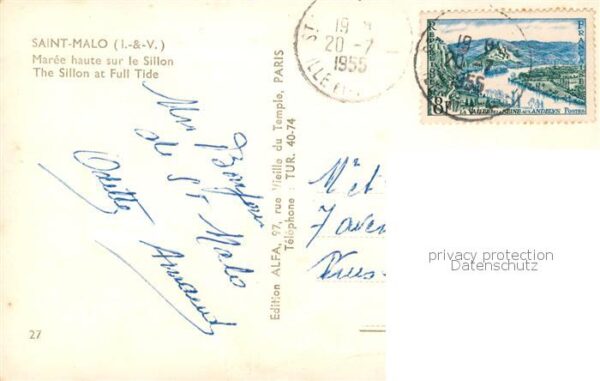 SAINT-MALO (I.-&-V.)
Marée haute sur le Sillon
The Sillon at Full Tide
Bonjour
de St Malo
Odette Armand
27
Edition ALFA, 97, rue Vieille du Temple, PARIS
Téléphone : TUR. 40-74
19 H
20-7
1955
19 H
20-7
1955
FRANÇAISE
8F
LA VALLÉE DE LA SEINE AUX ANDELYS POSTES
Mr et
7 aven
privacy protection
Datenschutz